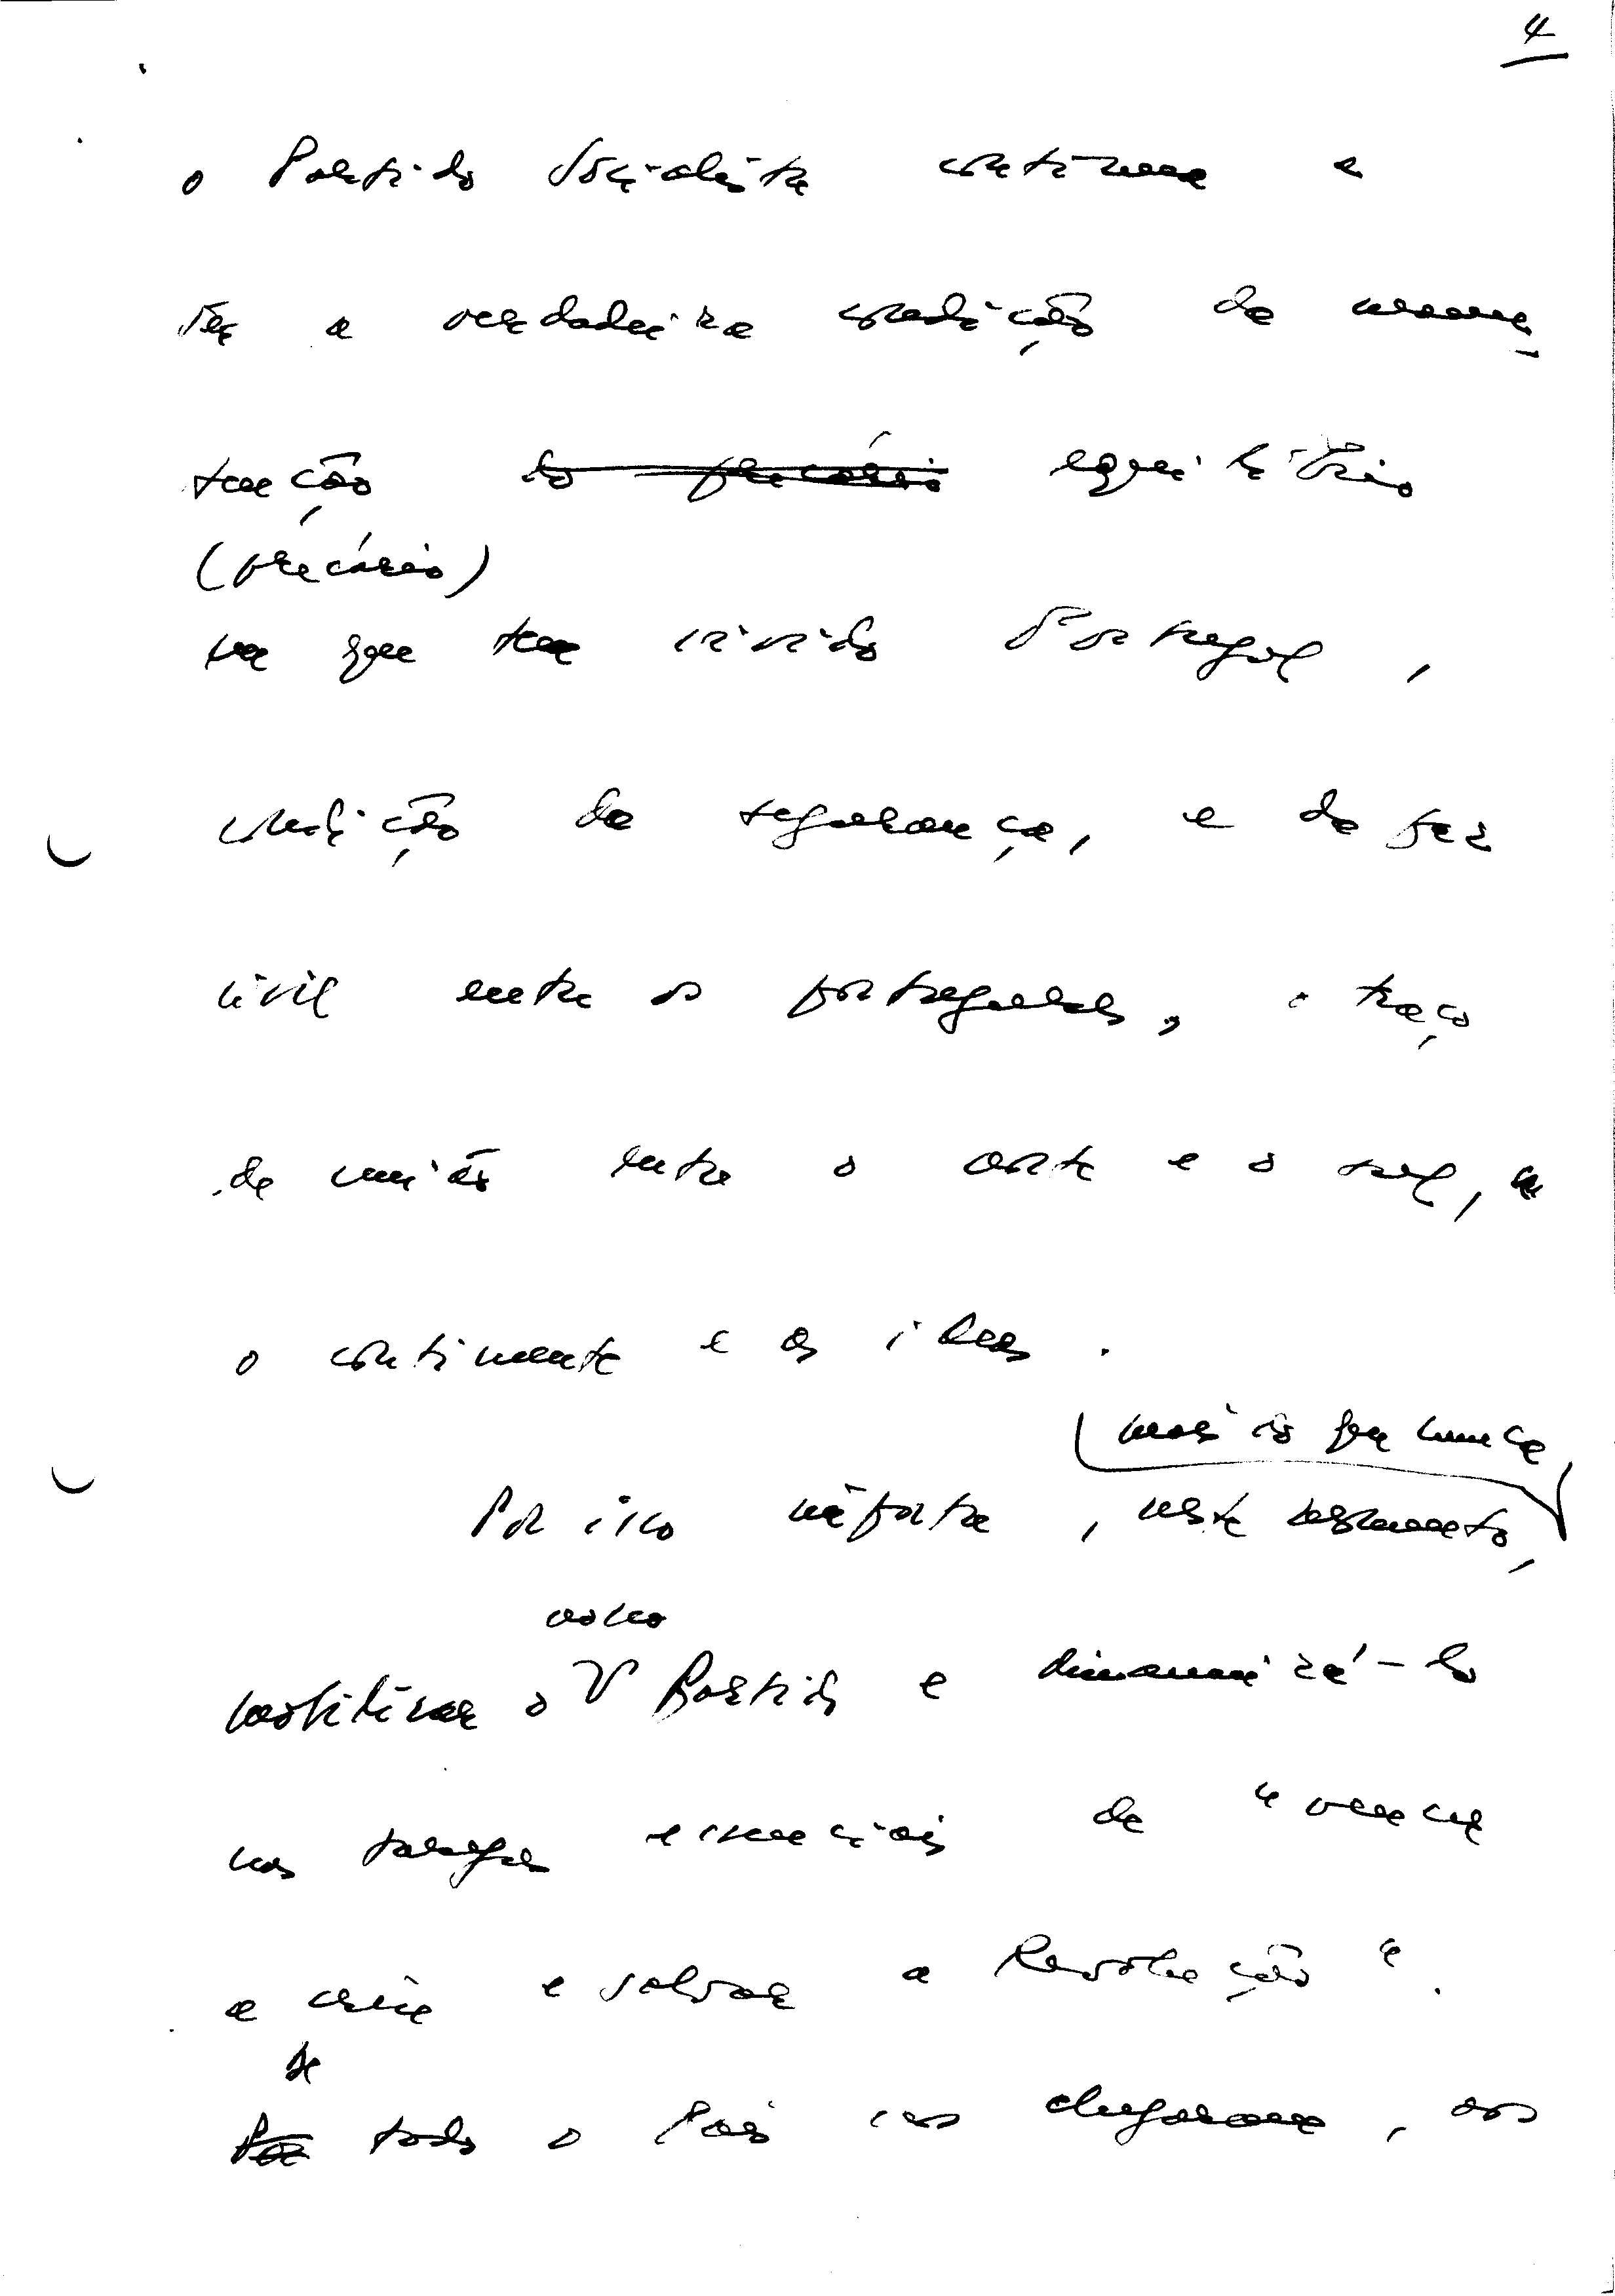 4
o Partido Socialista continua a
ser a verdadeira condição da manu-
tenção do precário equilíbrio
(precário)
em que tem vivido Portugal,
condição da segurança, e da paz
civil entre os portugueses, o traço
de união entre o norte e o sul, e
o continente e as ilhas.
mais do que nunca
Por isso importa, neste momento,
nosso
mobilizar o Partido e dinamizá-lo
nas tarefas essenciais de "vencer
a crise e salvar a Revolução".
De
Por todo o País nos chegaram, aos